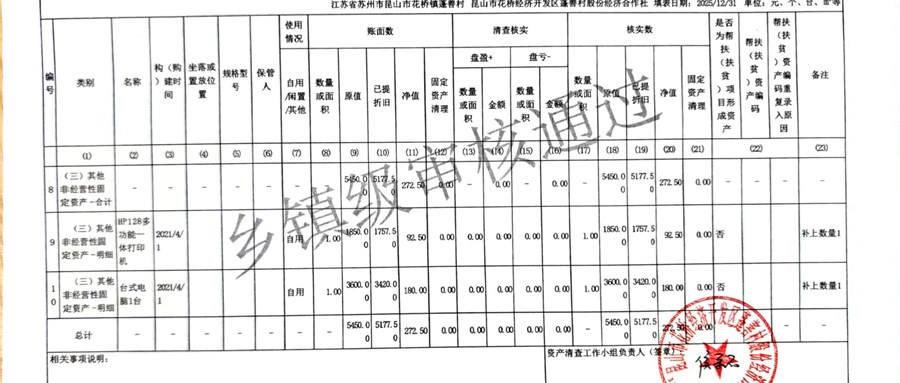 江苏省苏州市昆山市花桥镇蓬善村 昆山市花桥经济开发区蓬善村股份经济合作社 填表日期: 2025/12/31 单位: 元、个、台、亩等
编号 类别 名称 构（购）建时间 坐落或置放位置 规格型号 保管人 使用情况 账面数 清查核实 核实数 是否为帮扶（扶贫）项目形成资产 帮扶（扶贫）资产编码 帮扶（扶贫）资产编码重复录入原因 备注
盘盈+ 盘亏-
自用/闲置/其他 数量或面积 原值 已提折旧 净值 固定资产清理 数量或面积 金额 数量或面积 金额 数量或面积 原值 已提折旧 净值 固定资产清理
(1) (2) (3) (4) (5) (6) (7) (8) (9) (10) (11) (12) (13) (14) (15) (16) (17) (18) (19) (20) (21) (22) (23)
8 （三）其他非经营性固定资产-合计 - - - - - - - 5450.00 5177.50 272.50 0.00 - 0.00 - 0.00 - 5450.00 5177.50 272.50 0.00 - - - -
9 （三）其他非经营性固定资产-明细 HP128多功能一体打印机 2021/4/1 自用 1.00 1850.00 1757.50 92.50 0.00 0.00 0.00 0.00 0.00 1.00 1850.00 1757.50 92.50 0.00 否 补上数量1
10 （三）其他非经营性固定资产-明细 台式电脑1台 2021/4/1 自用 1.00 3600.00 3420.00 180.00 0.00 0.00 0.00 0.00 0.00 1.00 3600.00 3420.00 180.00 0.00 否 补上数量1
总计 - - - - - - - 5450.00 5177.50 272.50 0.00 0.00 0.00 0.00 0.00 - 5450.00 5177.50 272.50 0.00 - - - -
相关事项说明: 资产清查工作小组负责人（签章）
乡镇级审核通过